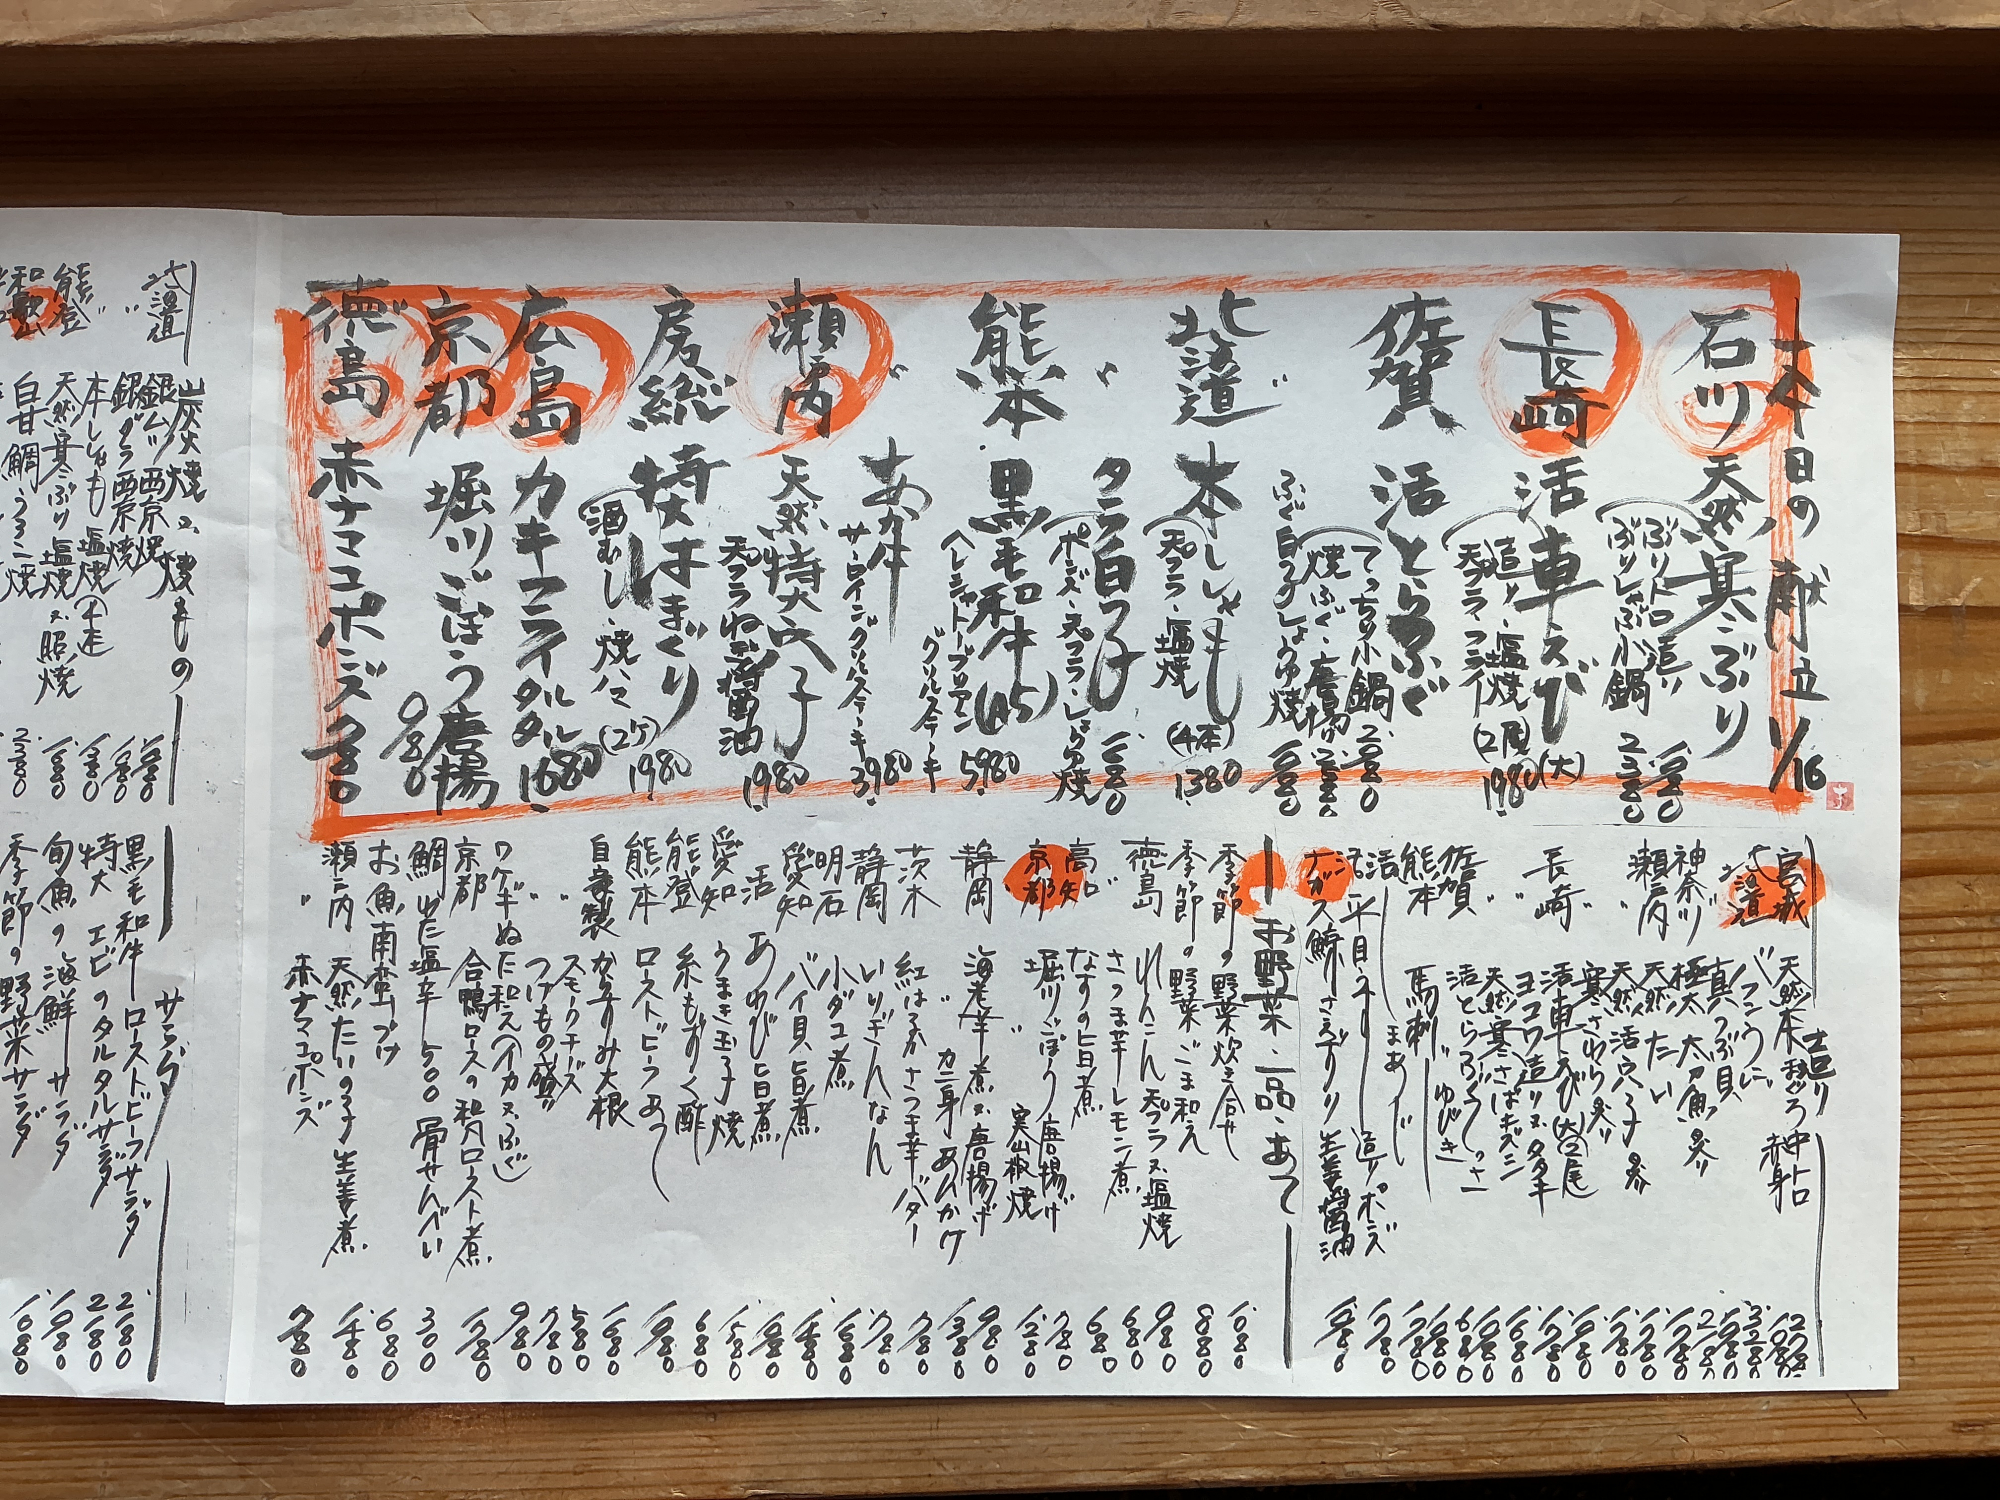 今日の献立 1/16
石川 天然寒ぶり
ぶりトロ造り 1980
ぶりしゃぶ小鍋 2380
長崎 活車えび(大)
造り・塩焼
天プラ・フライ (2尾) 1980
佐賀 活とらふぐ
てっちり小鍋 2980
焼ふぐ・唐揚げ
ふぐ白子しょうゆ焼
北海道 本ししゃも
天プラ・塩焼 (4本) 1380
〃 タラ白子 1680
ポンズ・天プラ・しょうゆ焼
熊本 黒毛和牛(A5) 5980
ヘレシャトーブリアン
グリルステーキ
〃 あか牛
サーロイングリルステーキ 3980
瀬戸内 天然特大穴子
天プラ わさび醤油 1980
房総 特大はまぐり
酒むし・焼ハマ (2ケ) 1980
広島 カキフライタルタル 1680
京都 堀川ごぼう唐揚 980
徳島 赤ナマコポンズ
造り
宮城 天然本マグロ 中トロ
赤身
北海道 バフンうに
〃 真つぶ貝
神奈川 極太 太刀魚
瀬戸内 天然 たい
〃 天然 活穴子
〃 寒さわら
長崎 活車えび(大)2尾
〃 ヨコワ造り又タタキ
〃 天然寒さばキズシ
佐賀 活とらふぐてっさ
熊本 馬刺し ゆびき
活 まあじ
活〆平目うすし 造りポンズ
ナガス鯨さえずり 生姜醤油
お野菜・一品・あて
季節の野菜炊き合せ 1080
季節の野菜ごま和え 880
徳島 れんこん天プラ又塩焼 980
さつま芋レモン煮 680
高知 なすの旨煮 780
京都 堀川ごぼう唐揚げ
〃 実山椒焼 1280
静岡 海老芋煮又唐揚げ 980
〃 カニ身あんかけ 1380
茨木 紅はるかさつま芋バター 780
静岡 いりぎんなん 780
明石 小ダコ煮 1680
愛知 バイ貝旨煮 1480
活 あわび旨煮
愛知 うまき玉子焼 1580
能登 糸もずく酢 680
熊本 ローストビーフあつ
自家製 からすみ大根 1680
〃 スモークチーズ 580
〃 つけもの盛り 780
ワケギぬた和え(イカ又ふぐ) 980
京都 合鴨ロースの和風ロースト煮
鯛わた塩辛 500 骨せんべい 300
お魚南蛮づけ 680
瀬戸内 天然たいの子生姜煮 1480
〃 赤ナマコポンズ
炭火焼 又 焼もの
北海道 銀ムツ西京焼
〃 銀ダラ西京焼 1980
本ししゃも塩焼(4走) 1380
能登 天然寒ぶり塩焼又照焼 1680
和歌山 白甘鯛うろこ焼 2380
サラダ
黒毛和牛ローストビーフサラダ 2180
特大 エビのタルタルサラダ 2180
旬魚の海鮮サラダ 1980
季節の野菜サラダ 1080